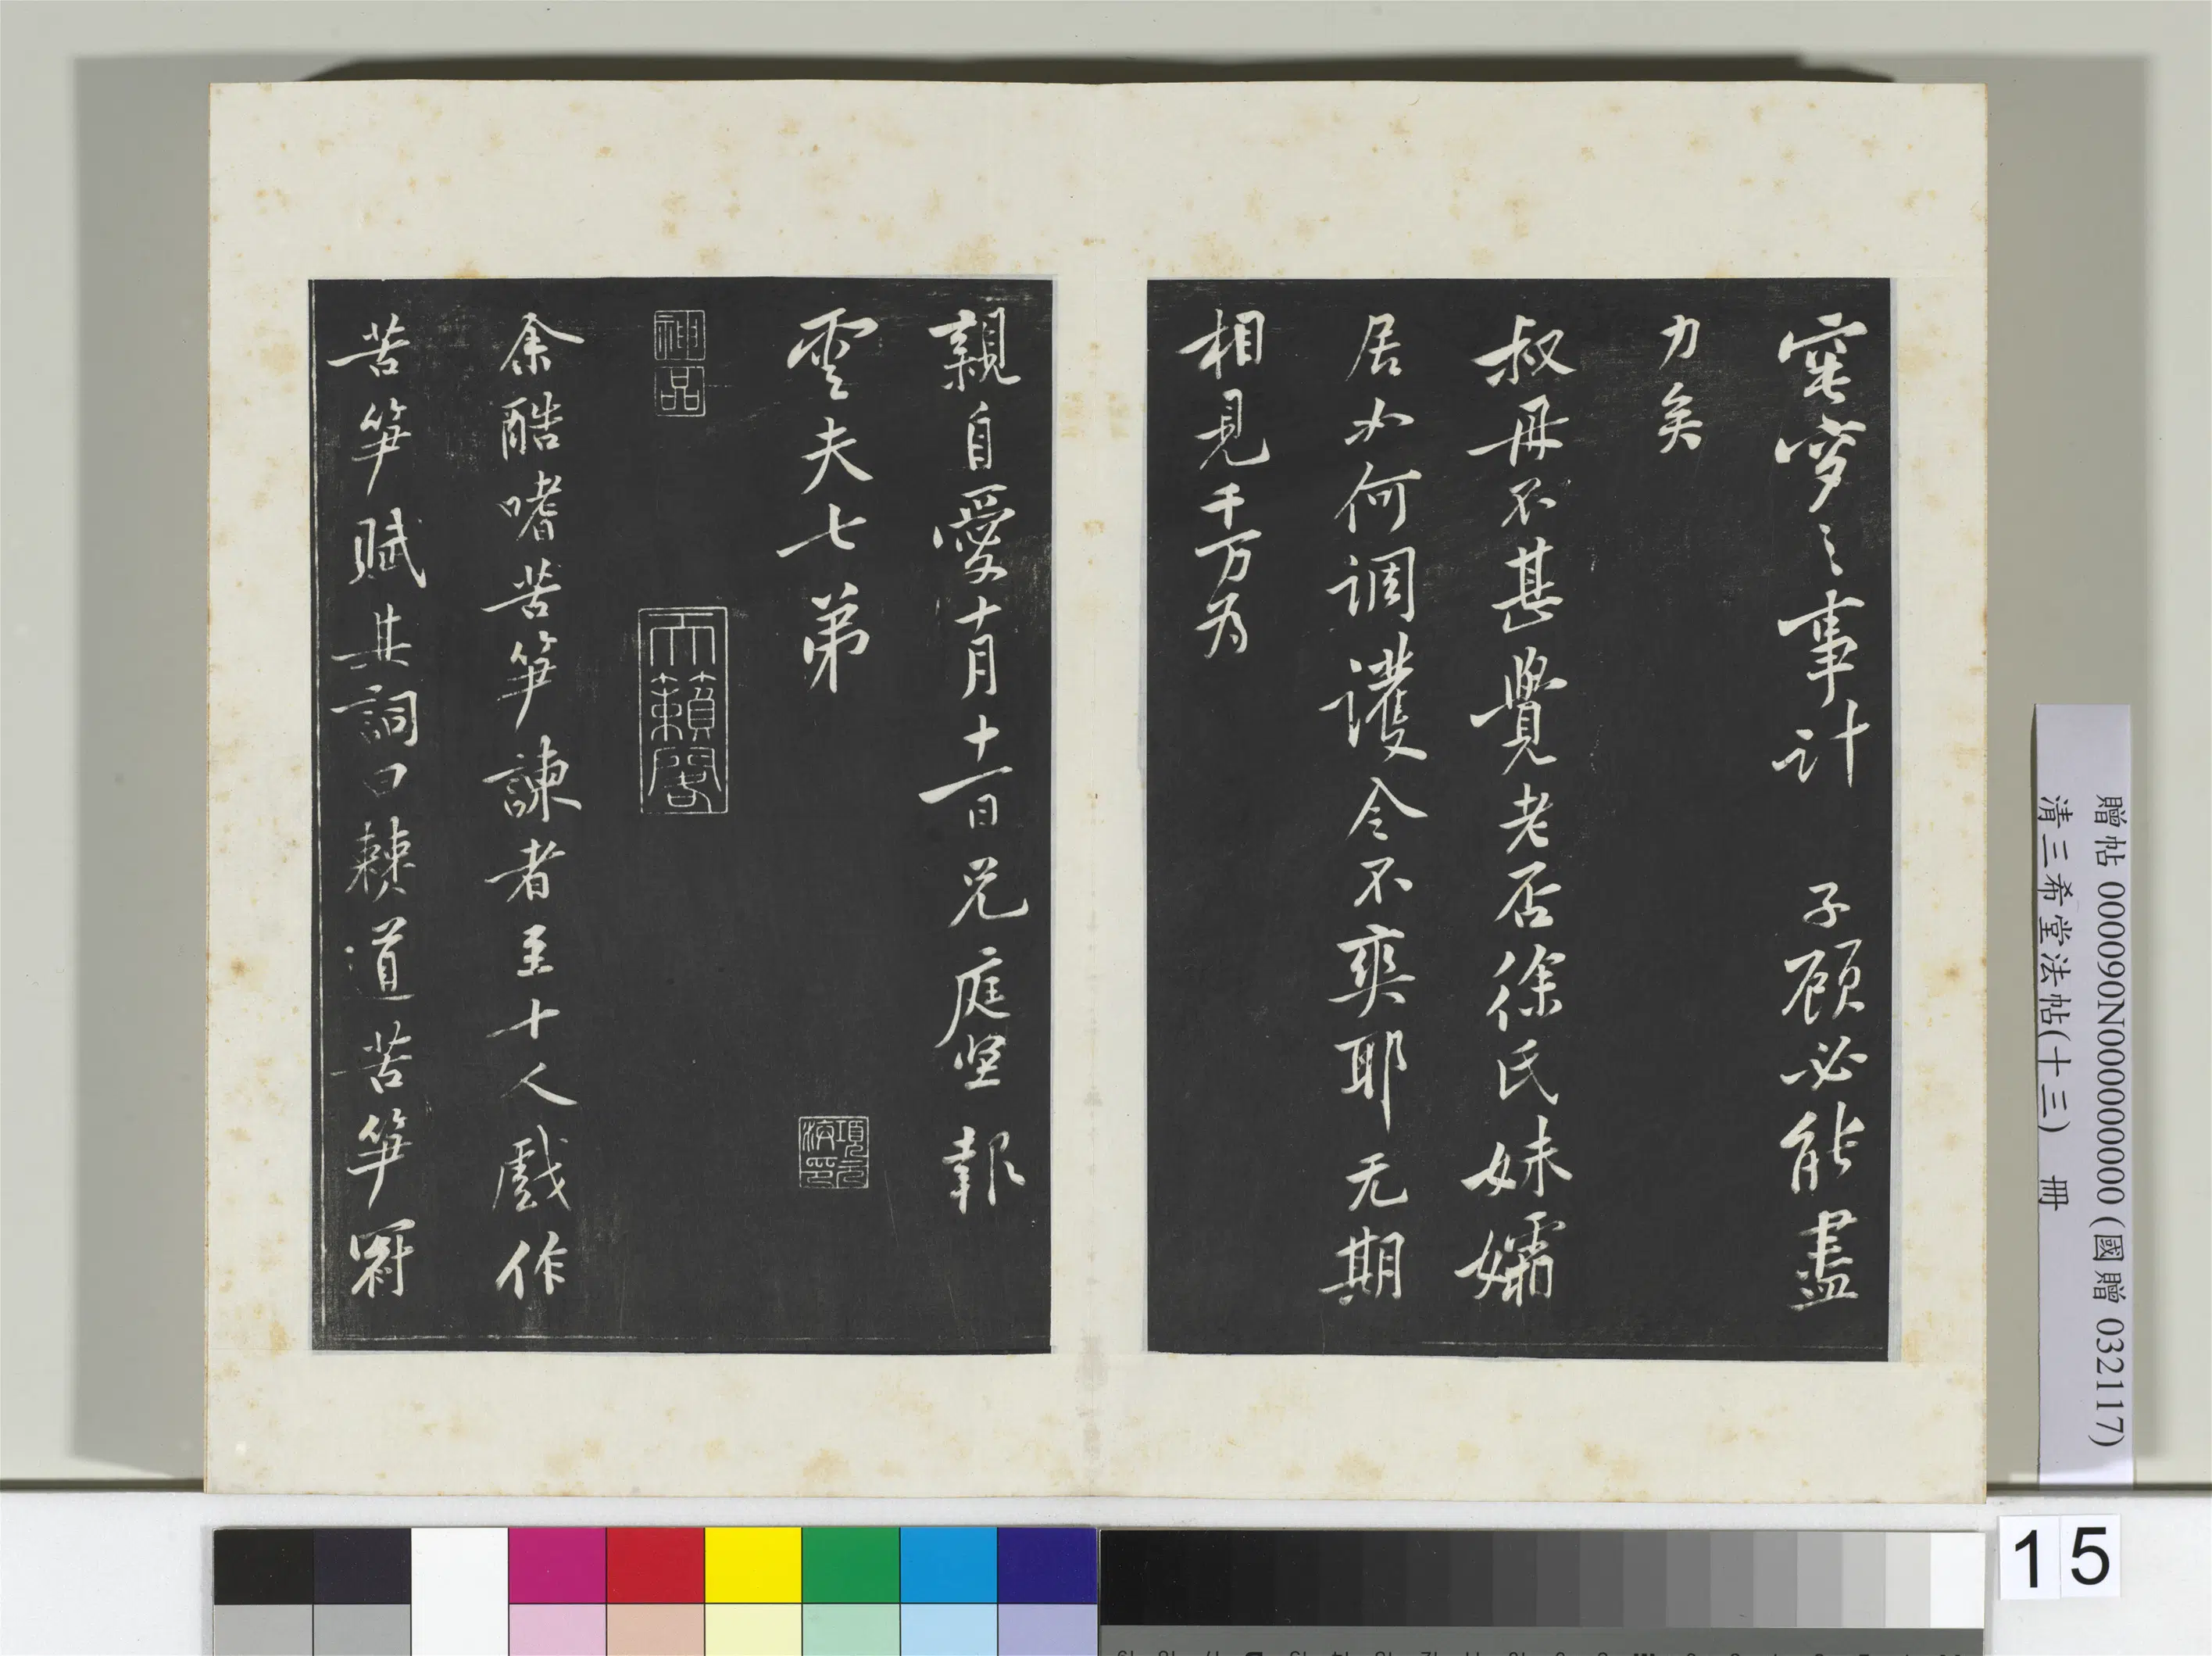 窀穸之事計 子顧必能盡
力矣
叔母不甚覺老否徐氏妹孀
居如何調護令不爽耶无期
相見千万为
親自愛十月十一日兄庭堅報
雲夫七弟
項元
汴印
神
品
天籟閣
余酷嗜苦笋諫者至十人戲作
苦笋賦其詞曰僰道苦笋冠
贈帖 000090N000000000 (國贈 032117)
清三希堂法帖(十三) 冊
15